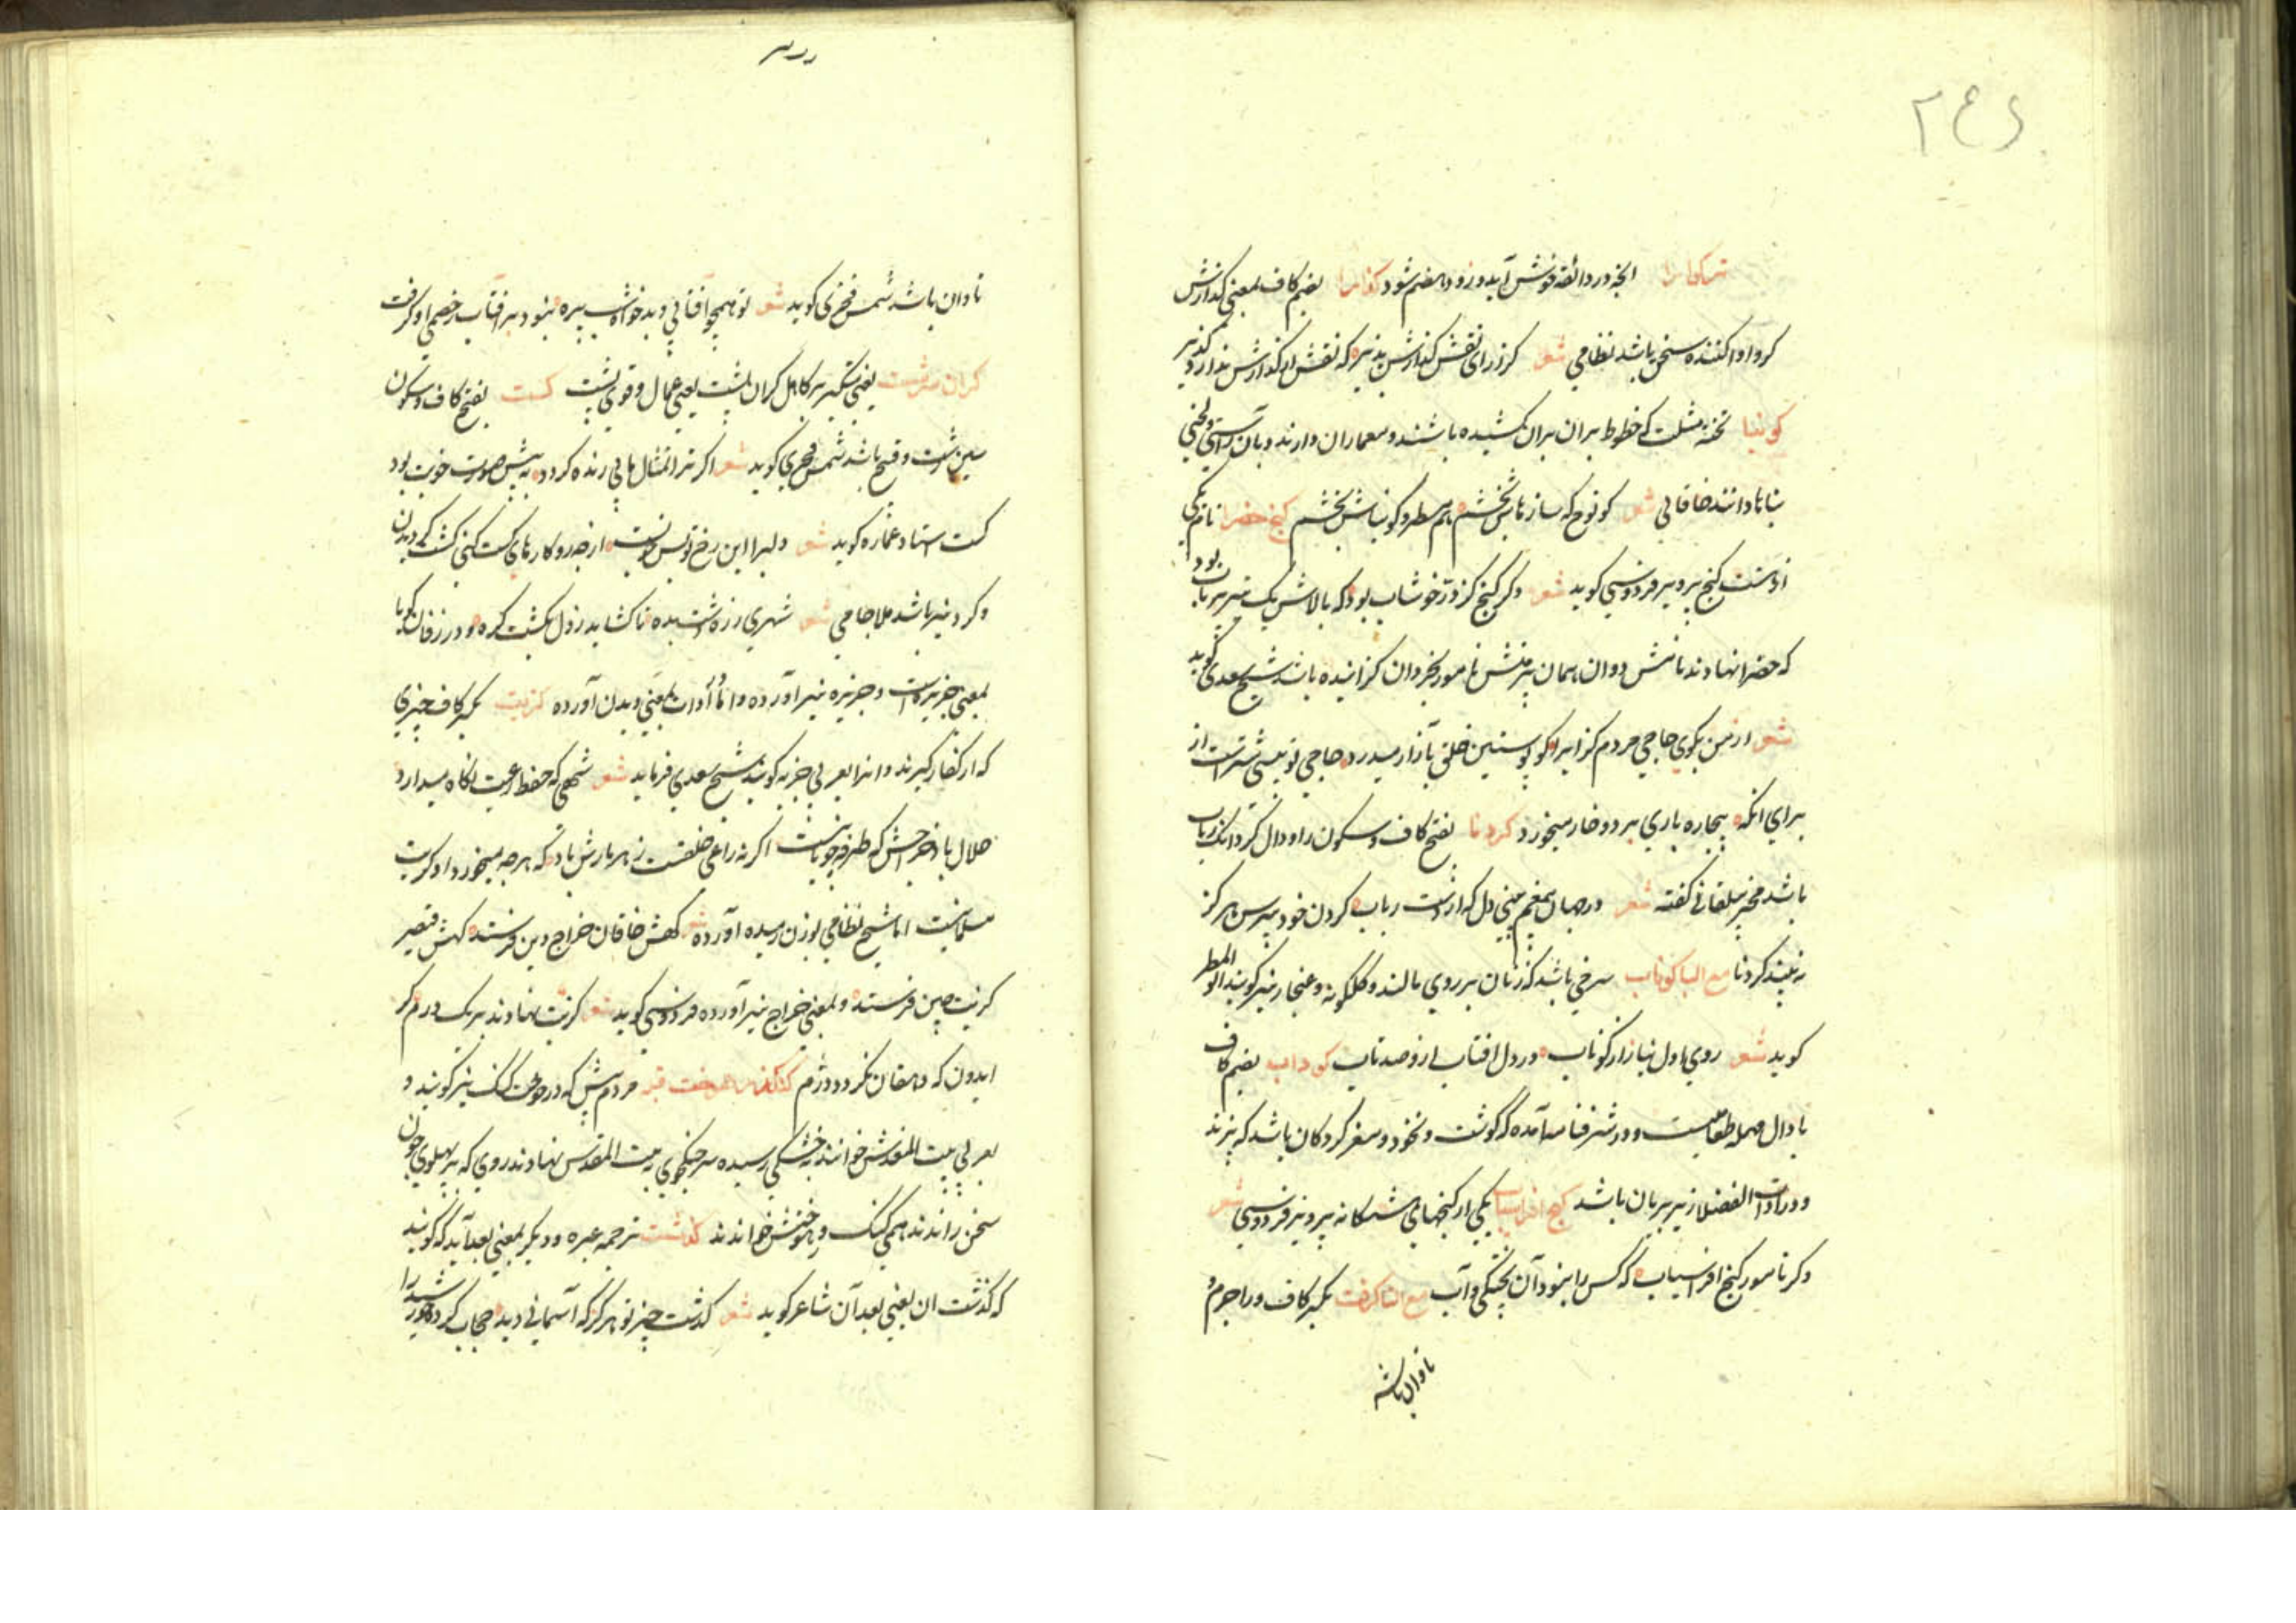 ۲۴۶
انچه در ذائقه خوش آید و زود هضم شود کزارا بضم کاف بمعنی گذارش
کرو ادا کننده سخن باشد نظامی شعر گذرای نقش گذارش پذیر که نقش از گذارش ندارد گزیر
کونیا تخته مثلث که خطوط بران بران کشیده باشند و معماران دارند و بان راستی و کجی
بناها دانند خاقانی شعر کو نوح که ساز هاش بخشم هم مسطر و کونیاش بخشم گنج خضرا نام یکی
از هشت گنج پرویز فردوسی گوید شعر دگر گنج کز در خوشاب بود که بالاش یک تیر پرتاب بود
که خضرا نهادند نامش روان همان نامور بخردان گزاینده باشد شیخ سعدی گوید
شعر از من بگوی حاجی مردم گزای را کو پوستین خلق بآزار میدرد حاجی تو نیستی شترست از
برای انکه بیچاره باری برد و خار میخورد کردنا بفتح کاف و سکون را و دال گردانک رباب
باشد گفته شعر در جهان بیغم مبینی دل که از دست رباب کردن خود هرگز
نه بیند کردنا مع البا کوناب سرخی باشد که زنان بر روی مالند و گلگونه و غنجار نیز گویند ابو المظفر
گوید شعر روی کوناب در دل افتاب از و صد تاب کوداب بضم کاف
با دال مهمله طعامیست و در شرفنامه آمده که گوشت و نخود و مغز گردکان باشد که پزند
و در ادات الفضلا زیر بریان باشد گنج افراسیاب یکی از گنجهای هشتگانه پرویز فردوسی شعر
دگر نامور گنج افراسیاب که کس را نبود آن بخشکی و آب مع التا کرفت بکسر کاف و را جرم و
تاوان باشد
تاوان باشد شمس فخری گوید شعر تو همچو آفتابی و بدخواه شب پره نبود بر آفتاب ز خصمی او کرفت
کران پشت یعنی سر کاهل گران پشت یعنی حمال و قوی پشت کست بفتح کاف و سکون
سین زشت و قبیح باشد شمس فخری گوید شعر اگر تمثال مانی زنده گردد به پیش صورت خوبت بود
کست استاد عماره گوید شعر دلبرا این رخ تو بس خوبست از چه رو کارهای کست کنی گشت دیدن
و گرد نیز باشد ملا جامی شعر شهری ره بده تا گشاید ز دل بگشت گره و در زفان گویا
بمعنی جزیره است و جزیره نیز آورده و اما ادات بمعنی دیدن آورده گزیت بکسر کاف چیزی
که از کفار گیرند و انرا بعربی جزیه گویند شیخ سعدی فرماید شعر شهی که حفظ رعیت نگاه میدارد
حلال باد خراجش که مزد چوپانیست اگر نه راعی خلقست زهرمارش باد که هر چه میخورد او گزیت
مسلمانیست اما شیخ نظامی بوزن رسیده آورده شعر گهش خاقان خراج چین فرستد گهش قیصر
گزیت چین فرستد و بمعنی خراج نیز آورده فردوسی گوید شعر گزیت نهادند بر یک درم گر
ایدون که دهقان نگردد دژم کنگدز هوخت مرد پیش که در گنگ نیز گویند و
بعربی بیت المقدسش خوانند بخشکی رسیده سر جنگجوی به بیت المقدس نهادند روی که بر پهلوی چون
سخن راندند همی گنگ دژ هوختش خواندند کذشت ترجمه عبره و دیگر بمعنی بعد آید که گویند
که گذشت ان یعنی بعد آن شاعر گوید شعر گذشت چتر تو هرگز که آسمانی دید حجاب کرده خور شید را